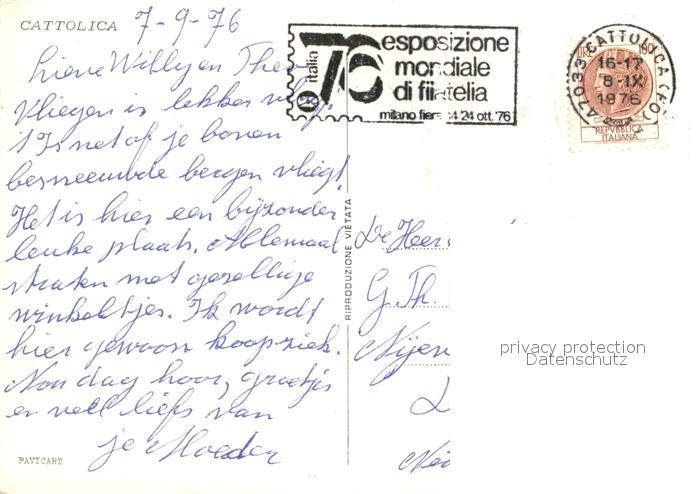 CATTOLICA 7-9-76
Lieve Willy en Theo
Vliegen is lekker vlug!
't Is net of je boven
besneeuwde bergen vliegt.
Het is hier een bijzonder
leuke plaats. Allemaal
straten met gezellige
winkeltjes. Ik wordt
hier gewoon koopziek.
Nou dag hoor, groetjes
en veel liefs van
je Moeder
PAVICART
RIPRODUZIONE VIETATA
italia 76 esposizione
mondiale
di filatelia
milano fiera 14/24 ott. '76
LIRE 180
REPVBBLICA
ITALIANA
47033 CATTOLICA (FO)
16-17
8-IX
1976
De Heer
G. Th.
Nijen
privacy protection
Datenschutz